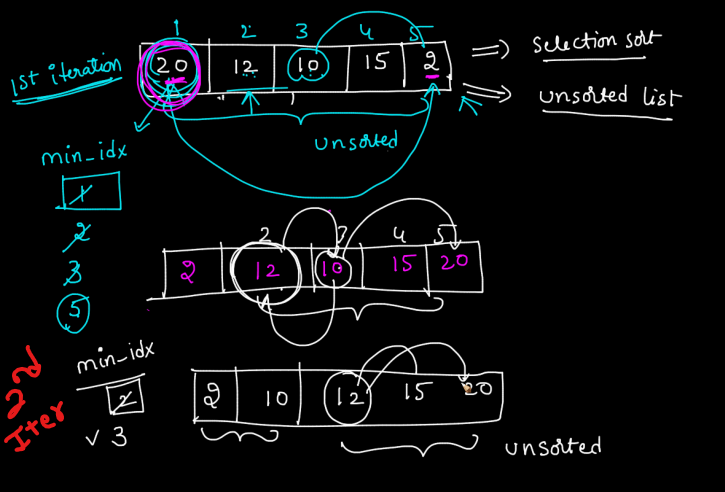 1 2 3 4 5
1st iteration 20 12 10 15 2 => selection sort
=> unsorted list
unsorted
min_idx
1
2
3
5
2 3 4 5
2 12 10 15 20
2nd Iter
min_idx
2
v 3
2 10 12 15 20
unsorted